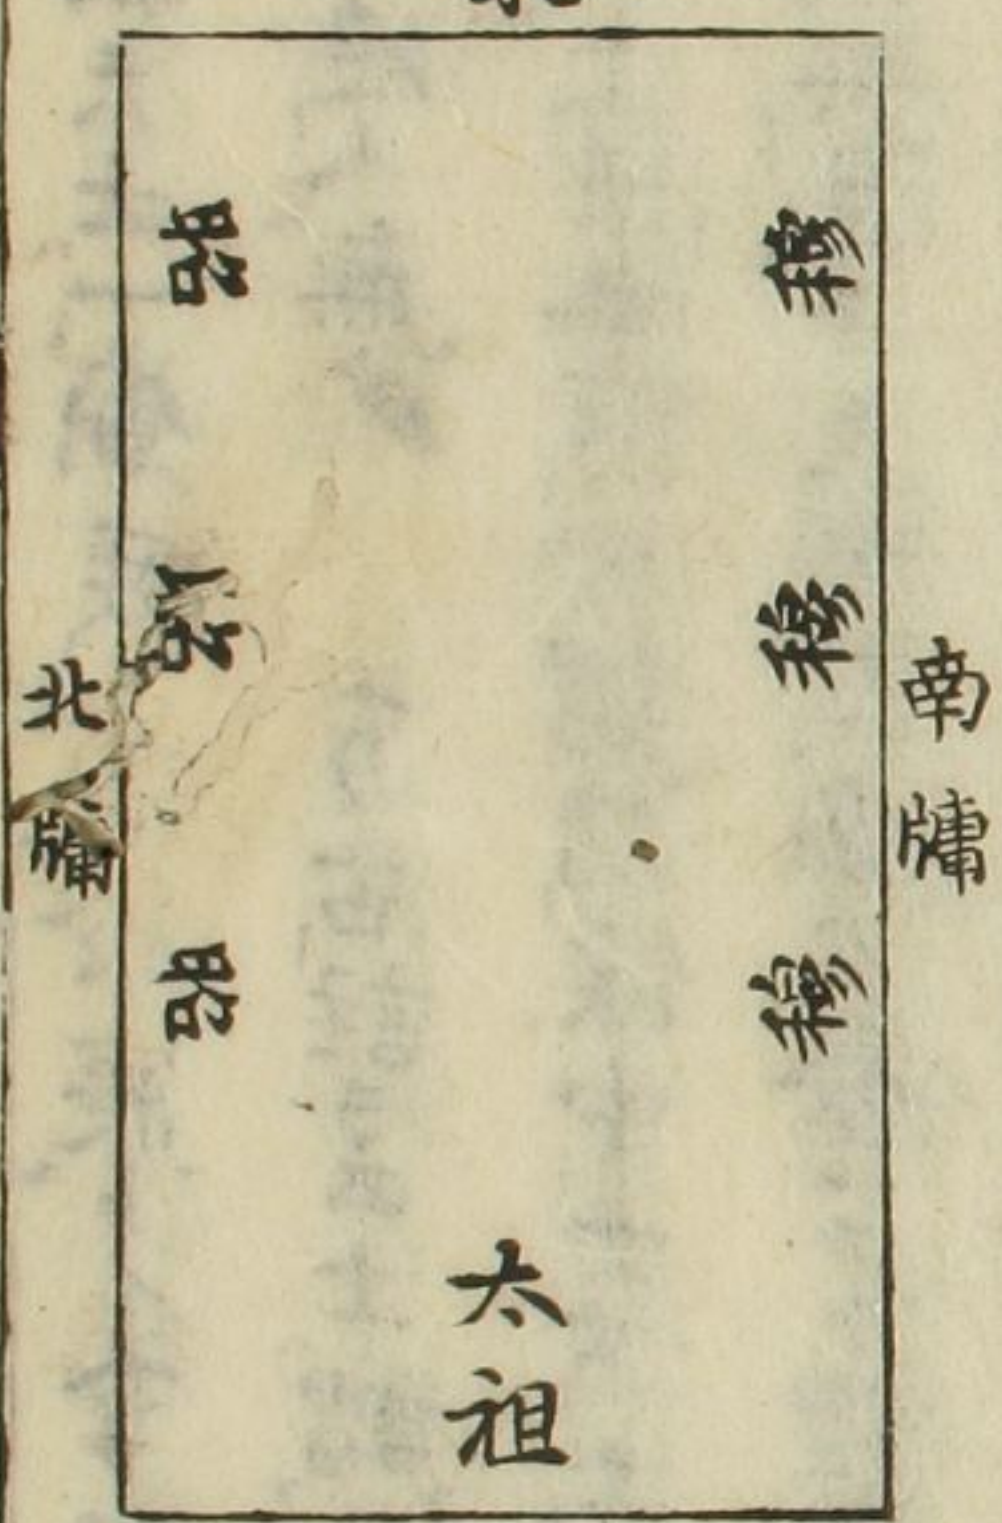 南牖
穆
穆
穆
太祖
昭
昭
昭
北牖